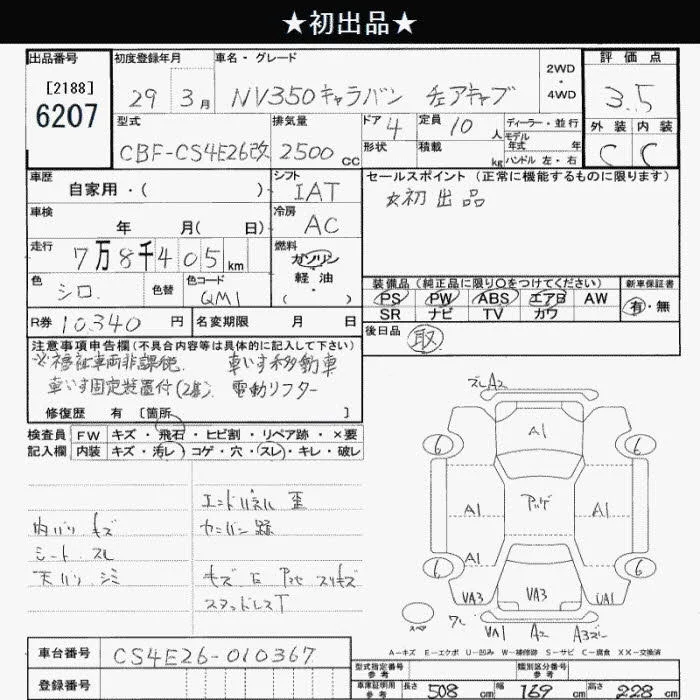 ★初出品★
出品番号 [2188] 6207
初度登録年月 29 3月
車名・グレード NV350キャラバン チェアキャブ
2WD・4WD
評価点 3.5
外装 C 内装 C
型式 CBF-CS4E26改
排気量 2500cc
ドア 4 形状
定員 10人 積載 kg
ディーラー・並行
モデル年式 年
ハンドル 左・右
車歴 自家用・( )
シフト IAT
セールスポイント (正常に機能するものに限ります)
☆初出品
車検 年 月( 日)
冷房 AC
走行 7万8千405km
燃料 ガソリン・軽油 ( )
色 シロ 色替 色コード QM1
装備品 (純正品に限り○をつけてください)
新車保証書 有・無
PS PW ABS エアB AW
SR ナビ TV カワ
R券 10,340円 名変期限 月 日
後日品 取
注意事項申告欄(不具合内容等は具体的に記入して下さい)
※福祉車両非課税 車いす移動車
車いす固定装置付(2基) 電動リフター
修復歴 有 [箇所 ]
検査員記入欄
FW キズ・飛石・ヒビ割・リペア跡・×要
内装 キズ・汚レ・コゲ・穴・スレ・キレ・破レ
エンドパネル 歪
内バリ キズ
シート スレ
天バリ シミ
スタッドレスT
ズレA2
A1
6 6
A1 A1
A1
6 6
VA3 VA3 UA1
スペア
VA1 A2 A3ズレ
A−キズ E−エクボ U−凹み W−補修跡 S−サビ C−腐食 XX−交換済
車台番号 CS4E26-010367
登録番号
型式指定番号 参考
類別区分番号 参考
車庫証明用 参考 長さ 508cm 幅 169cm 高さ 228cm